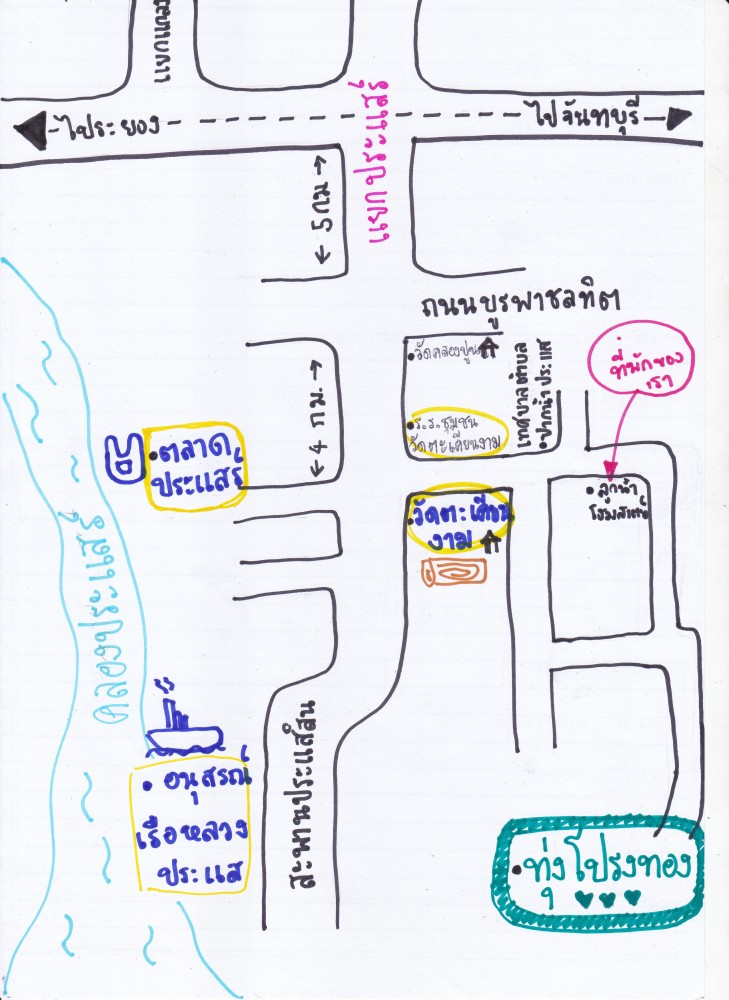 แยกแกลง
ไประยอง
ไปจันทบุรี
แยกประแสร์
5 กม
ถนนบูรพาชลทิต
วัดคลองปูน
4 กม.
ร.ร.ชุมชน
วัดตะเคียนงาม
เทศบาลตำบล
ปากน้ำประแส
ที่พักของ
เรา
ตลาด
ประแสร์
วัดตะเคียน
งาม
ลูกน้ำ
โฮมสเตย์
คลองประแสร์
สะพานประแสสิน
อนุสรณ์
เรือหลวง
ประแส
ทุ่งโปรงทอง